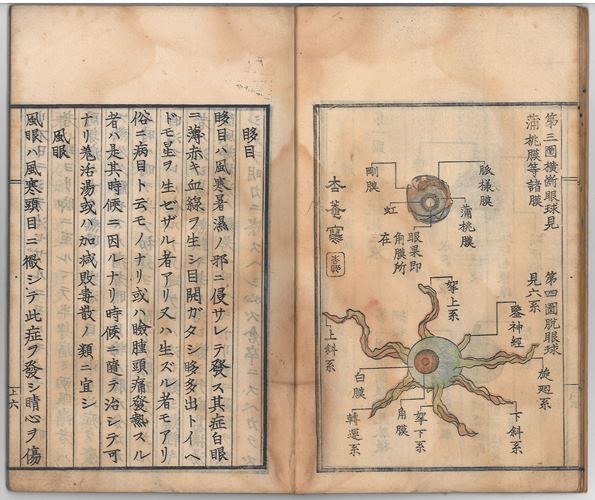 第三圖横斷眼球見
蒲桃膜等諸膜
脈樣膜
蒲桃膜
剛膜
虹
眼泉即
角膜所
在
杏菴寫
第四圖脱眼球
見六系
穿上系
鑒神經
旋廻系
上斜系
下斜系
白膜
角膜
穿下系
轉運系
眵目
眵目ハ風寒暑濕ノ邪ニ侵サレテ發ス其症白眼
ニ薄赤キ血線ヲ生シ目開ガタシ眵多出トイヘ
ドモ星ヲ生セザル者アリ又ハ生ズル者モアリ
俗ニ病目ト云モノナリ或ハ瞼腫頭痛發熱スル
者ハ是其時候ニ因ルナリ時候ニ隨テ治シテ可
ナリ羗治湯或ハ加減敗毒散ノ類ニ宜シ
風眼
風眼ハ風寒頭目ニ徹シテ此症ヲ發シ睛心ヲ傷
上六